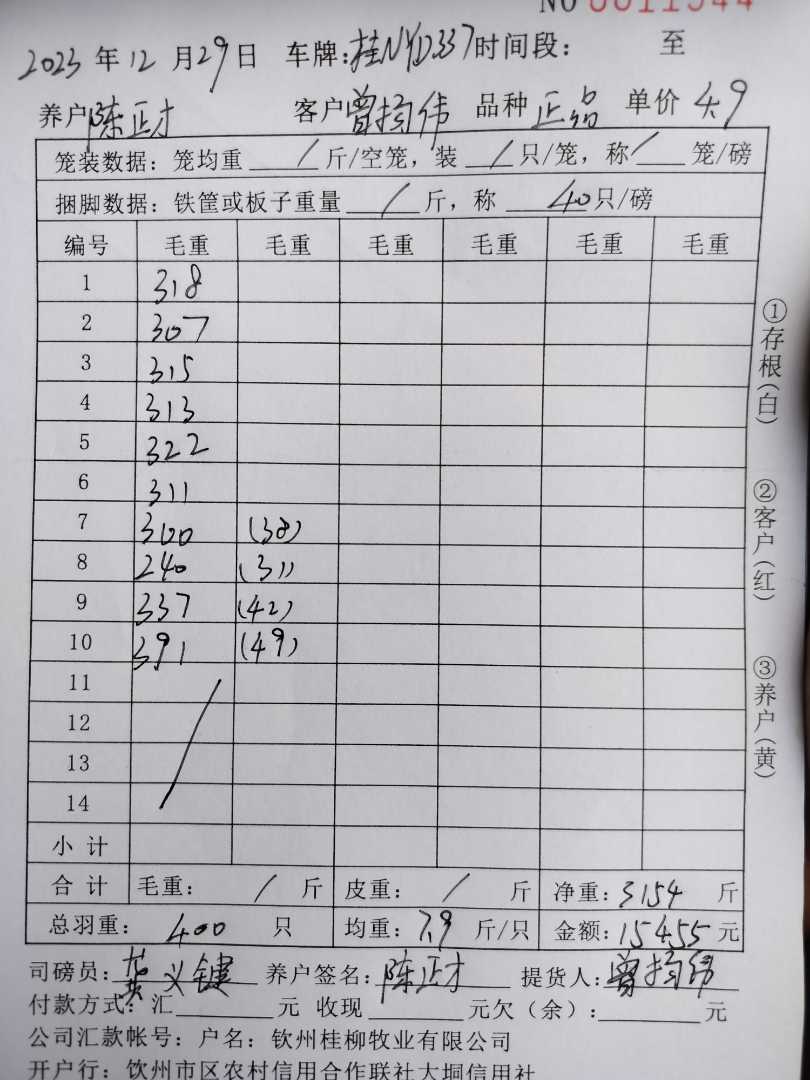 NO 0011944
2023 年 12 月 29 日 车牌: 桂NYD337 时间段: 至
养户 陈正才 客户 曾扬伟 品种 正品 单价 4.9
笼装数据: 笼均重 / 斤/空笼, 装 / 只/笼, 称 / 笼/磅
捆脚数据: 铁筐或板子重量 / 斤, 称 40 只/磅
编号 毛重 毛重 毛重 毛重 毛重 毛重
1 318
2 307
3 315
4 313
5 322
6 311
7 300 (38)
8 240 (31)
9 337 (42)
10 391 (49)
11
12
13
14
小计
合计 毛重: / 斤 皮重: / 斤 净重: 3154 斤
总羽重: 400 只 均重: 7.9 斤/只 金额: 15455 元
司磅员: 义键 养户签名: 陈正才 提货人: 曾扬伟
付款方式: 汇 元 收现 元欠(余): 元
公司汇款帐号: 户名: 钦州桂柳牧业有限公司
开户行: 钦州市区农村信用合作联社大垌信用社
①存根(白)
②客户(红)
③养户(黄)